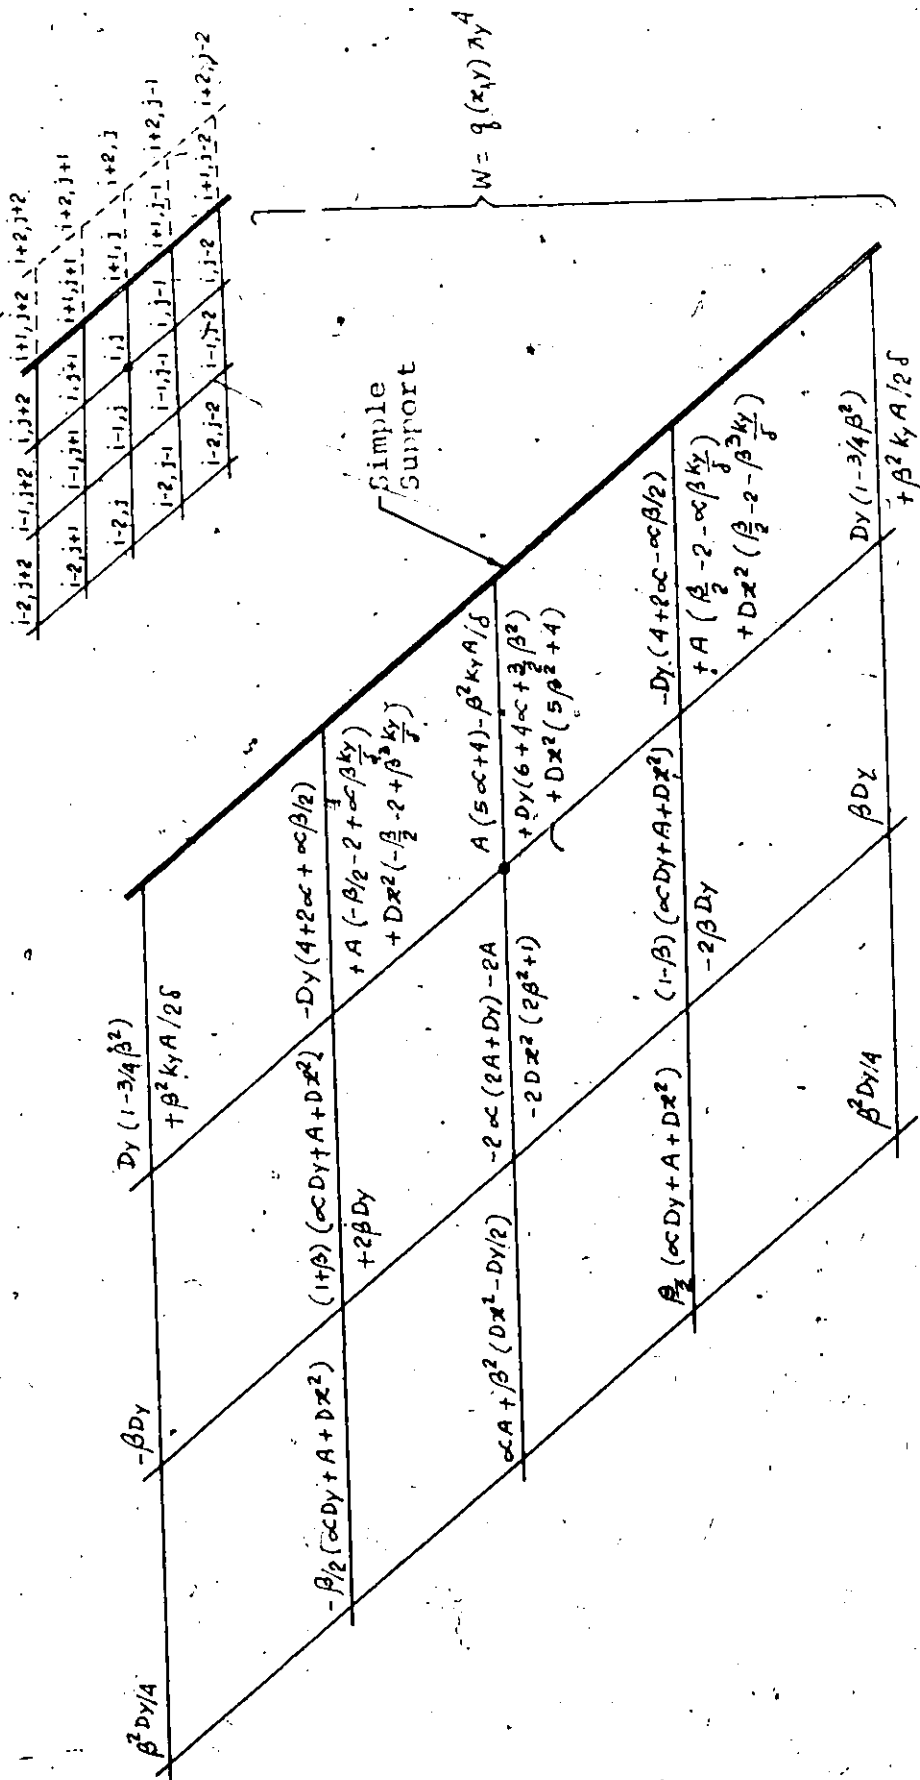 i-2, j+2 i-1, j+2 i, j+2 i+1, j+2 i+2, j+2
i-2, j+1 i-1, j+1 i, j+1 i+1, j+1 i+2, j+1
i-2, j i-1, j i, j i+1, j i+2, j
i-2, j-1 i-1, j-1 i, j-1 i+1, j-1 i+2, j-1
i-2, j-2 i-1, j-2 i, j-2 i+1, j-2 i+2, j-2
Simple
Support
W = q(x,y) λy⁴
β²Dy/4
-βDy
Dy (1-3/4 β²)
+ β² ky A/2δ
-β/2 (αDy + A + Dx²)
(1+β) (αDy + A + Dx²)
+2βDy
-Dy (4+2α + αβ/2)
+A (-β/2 -2 + αβ ky/δ)
+Dx² (-β/2 -2 + β³ ky/δ)
αA + β² (Dx² - Dy/2)
-2α (2A + Dy) -2A
-2Dx² (2β²+1)
A (5α+4) - β² ky A/δ
+Dy (6+4α + 3/2 β²)
+Dx² (5β² + 4)
β/2 (αDy + A + Dx²)
(1-β) (αDy + A + Dx²)
-2βDy
-Dy (4+2α - αβ/2)
+A (β/2 -2 - αβ ky/δ)
+Dx² (β/2 -2 - β³ ky/δ)
β²Dy/4
βDy
Dy (1-3/4 β²)
+ β² ky A/2δ